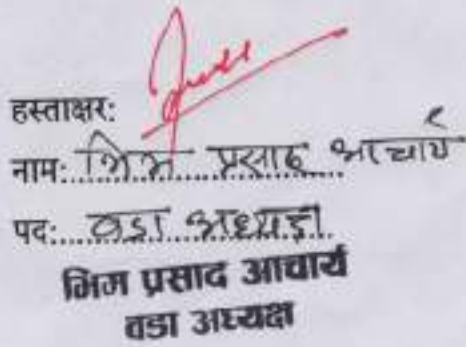 हस्ताक्षर:
नाम: भिम प्रसाद आचार्य
पद: वडा अध्यक्ष
भिम प्रसाद आचार्य
वडा अध्यक्ष